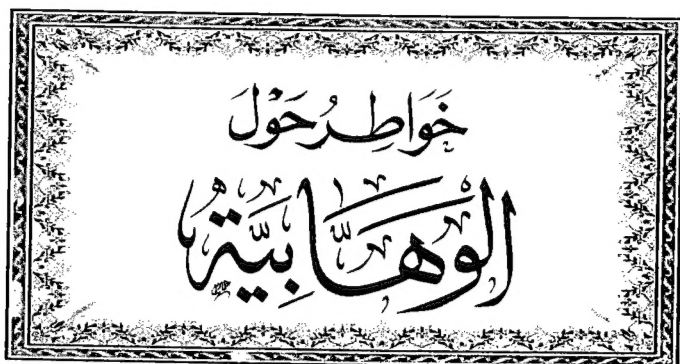 خَوَاطِر حَوْلَ
الوَهَّابِيَّة